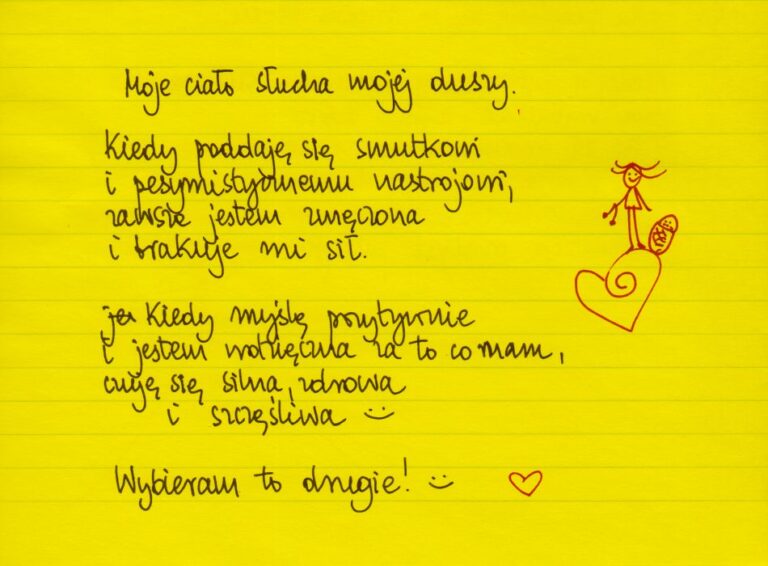 Moje ciało słucha mojej duszy.
Kiedy poddaję się smutkowi
i pesymistycznemu nastrojowi,
zawsze jestem zmęczona
i brakuje mi sił.
Kiedy myślę pozytywnie
i jestem wdzięczna za to co mam,
czuję się silna, zdrowa
i szczęśliwa :)
Wybieram to drugie! :)